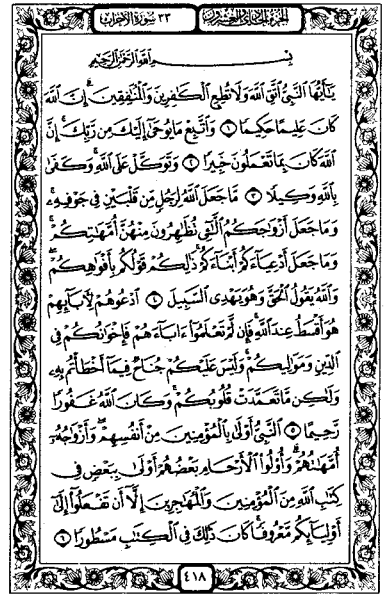 الجزء الحادي والعشرون
٣٣ سورة الأحزاب
بسم الله الرحمن الرحيم
يَٰٓأَيُّهَا ٱلنَّبِىُّ ٱتَّقِ ٱللَّهَ وَلَا تُطِعِ ٱلْكَٰفِرِينَ وَٱلْمُنَٰفِقِينَ إِنَّ ٱللَّهَ
كَانَ عَلِيمًا حَكِيمًا ١ وَٱتَّبِعْ مَا يُوحَىٰٓ إِلَيْكَ مِن رَّبِّكَ إِنَّ
ٱللَّهَ كَانَ بِمَا تَعْمَلُونَ خَبِيرًا ٢ وَتَوَكَّلْ عَلَى ٱللَّهِ وَكَفَىٰ
بِٱللَّهِ وَكِيلًا ٣ مَّا جَعَلَ ٱللَّهُ لِرَجُلٍ مِّن قَلْبَيْنِ فِى جَوْفِهِۦ
وَمَا جَعَلَ أَزْوَٰجَكُمُ ٱلَّٰٓـِٔى تُظَٰهِرُونَ مِنْهُنَّ أُمَّهَٰتِكُمْ
وَمَا جَعَلَ أَدْعِيَآءَكُمْ أَبْنَآءَكُمْ ذَٰلِكُمْ قَوْلُكُم بِأَفْوَٰهِكُمْ
وَٱللَّهُ يَقُولُ ٱلْحَقَّ وَهُوَ يَهْدِى ٱلسَّبِيلَ ٤ ٱدْعُوهُمْ لِءَابَآئِهِمْ
هُوَ أَقْسَطُ عِندَ ٱللَّهِ فَإِن لَّمْ تَعْلَمُوٓا۟ ءَابَآءَهُمْ فَإِخْوَٰنُكُمْ فِى
ٱلدِّينِ وَمَوَٰلِيكُمْ وَلَيْسَ عَلَيْكُمْ جُنَاحٌ فِيمَآ أَخْطَأْتُم بِهِۦ
وَلَٰكِن مَّا تَعَمَّدَتْ قُلُوبُكُمْ وَكَانَ ٱللَّهُ غَفُورًا
رَّحِيمًا ٥ ٱلنَّبِىُّ أَوْلَىٰ بِٱلْمُؤْمِنِينَ مِنْ أَنفُسِهِمْ وَأَزْوَٰجُهُۥٓ
أُمَّهَٰتُهُمْ وَأُو۟لُوا۟ ٱلْأَرْحَامِ بَعْضُهُمْ أَوْلَىٰ بِبَعْضٍ فِى
كِتَٰبِ ٱللَّهِ مِنَ ٱلْمُؤْمِنِينَ وَٱلْمُهَٰجِرِينَ إِلَّآ أَن تَفْعَلُوٓا۟ إِلَىٰٓ
أَوْلِيَآئِكُم مَّعْرُوفًا كَانَ ذَٰلِكَ فِى ٱلْكِتَٰبِ مَسْطُورًا ٦
٤١٨